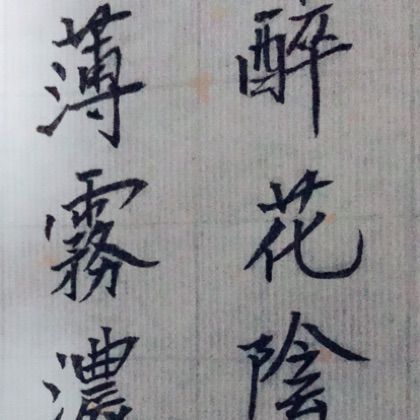 醉花陰
薄霧濃